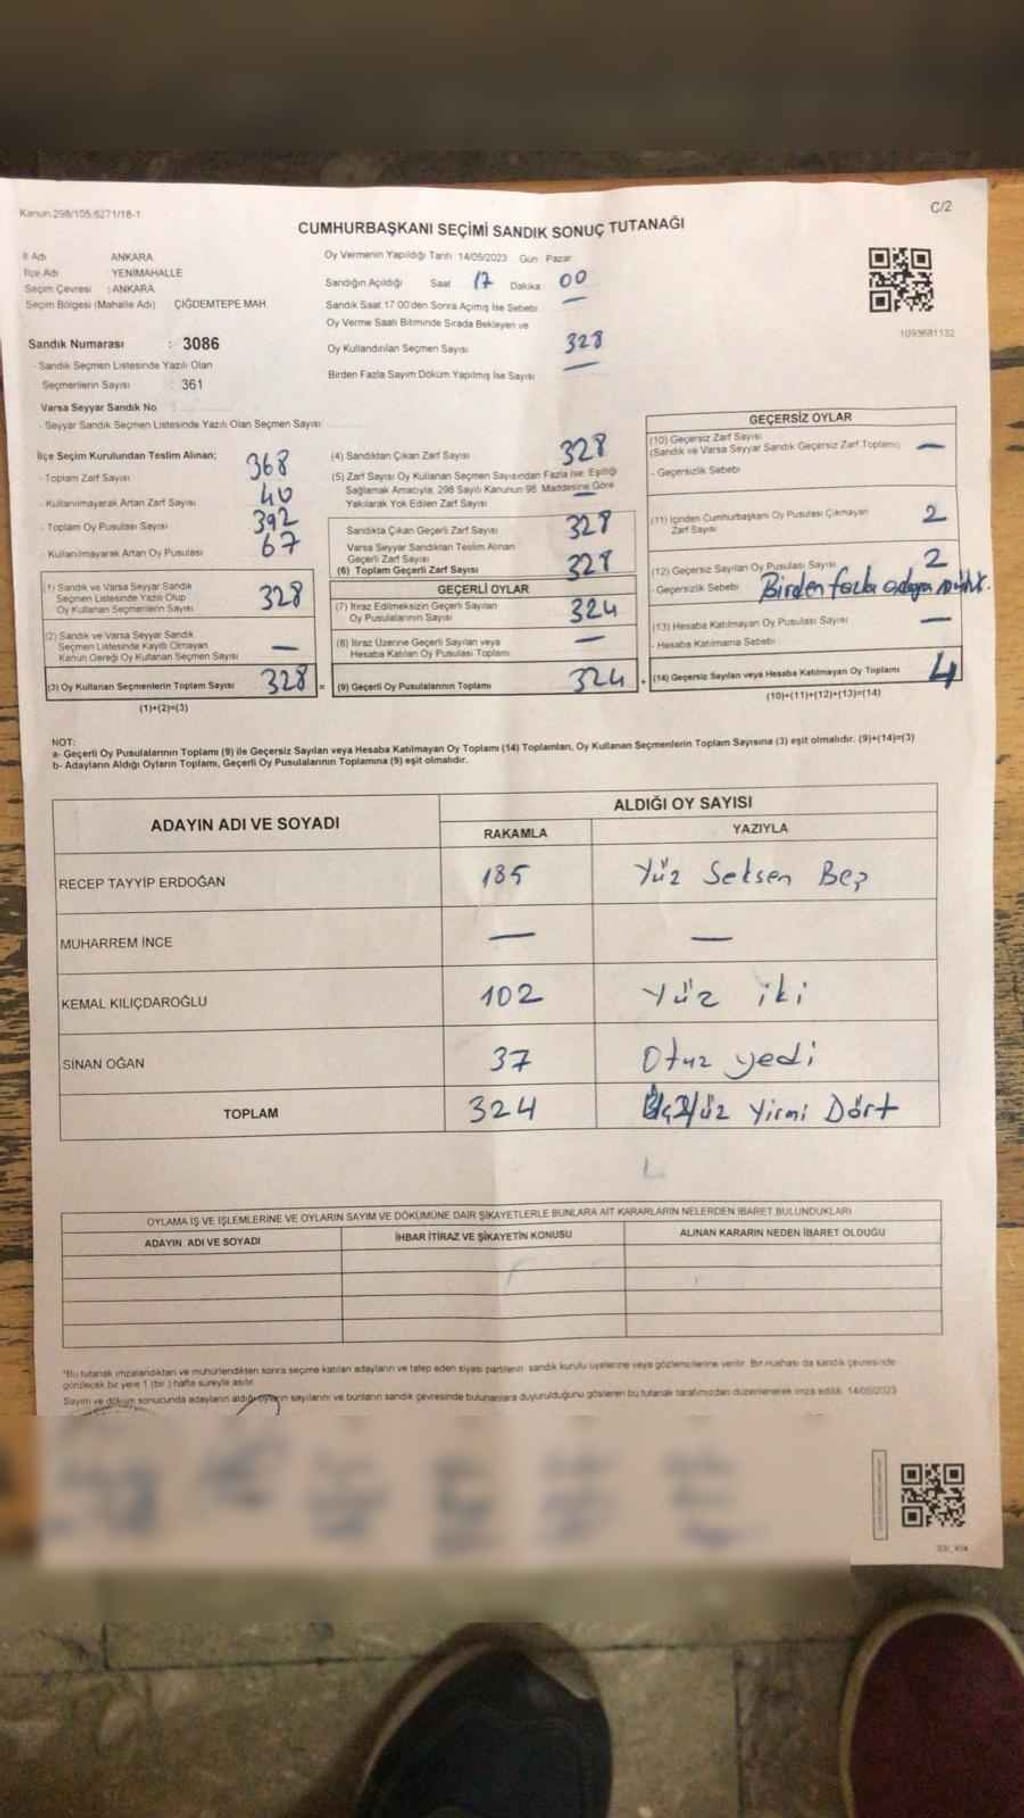 Kanun 298/105,6271/18-1
C/2
CUMHURBAŞKANI SEÇİMİ SANDIK SONUÇ TUTANAĞI
İl Adı ANKARA
İlçe Adı YENİMAHALLE
Seçim Çevresi : ANKARA
Seçim Bölgesi (Mahalle Adı) ÇİĞDEMTEPE MAH.
Sandık Numarası : 3086
- Sandık Seçmen Listesinde Yazılı Olan
Seçmenlerin Sayısı : 361
Varsa Seyyar Sandık No
- Seyyar Sandık Seçmen Listesinde Yazılı Olan Seçmen Sayısı
Oy Vermenin Yapıldığı Tarih 14/05/2023 Gün Pazar
Sandığın Açıldığı Saat 17 Dakika 00
Sandık Saat 17.00'den Sonra Açılmış İse Sebebi —
Oy Verme Saati Bitiminde Sırada Bekleyen ve
Oy Kullandırılan Seçmen Sayısı 328
Birden Fazla Sayım Döküm Yapılmış İse Sayısı —
1093681132
İlçe Seçim Kurulundan Teslim Alınan;
- Toplam Zarf Sayısı 368
- Kullanılmayarak Artan Zarf Sayısı 40
- Toplam Oy Pusulası Sayısı 392
- Kullanılmayarak Artan Oy Pusulası 67
(1) Sandık ve Varsa Seyyar Sandık
Seçmen Listesinde Yazılı Olup
Oy Kullanan Seçmenlerin Sayısı 328
(2) Sandık ve Varsa Seyyar Sandık
Seçmen Listesinde Kayıtlı Olmayan
Kanun Gereği Oy Kullanan Seçmen Sayısı —
(3) Oy Kullanan Seçmenlerin Toplam Sayısı 328 =
(1)+(2)=(3)
(4) Sandıktan Çıkan Zarf Sayısı 328
(5) Zarf Sayısı Oy Kullanan Seçmen Sayısından Fazla İse, Eşitliği
Sağlamak Amacıyla, 298 Sayılı Kanunun 98. Maddesine Göre
Yakılarak Yok Edilen Zarf Sayısı —
Sandıkta Çıkan Geçerli Zarf Sayısı 328
Varsa Seyyar Sandıktan Teslim Alınan
Geçerli Zarf Sayısı
(6) Toplam Geçerli Zarf Sayısı 328
GEÇERLİ OYLAR
(7) İtiraz Edilmeksizin Geçerli Sayılan
Oy Pusulalarının Sayısı 324
(8) İtiraz Üzerine Geçerli Sayılan veya
Hesaba Katılan Oy Pusulası Toplamı —
(9) Geçerli Oy Pusulalarının Toplamı 324 +
GEÇERSİZ OYLAR
(10) Geçersiz Zarf Sayısı
(Sandık ve Varsa Seyyar Sandık Geçersiz Zarf Toplamı) —
- Geçersizlik Sebebi
(11) İçinden Cumhurbaşkanı Oy Pusulası Çıkmayan
Zarf Sayısı 2
(12) Geçersiz Sayılan Oy Pusulası Sayısı 2
- Geçersizlik Sebebi Birden fazla adaya mühür.
(13) Hesaba Katılmayan Oy Pusulası Sayısı —
- Hesaba Katılmama Sebebi
(14) Geçersiz Sayılan veya Hesaba Katılmayan Oy Toplamı 4
(10)+(11)+(12)+(13)=(14)
NOT:
a- Geçerli Oy Pusulalarının Toplamı (9) ile Geçersiz Sayılan veya Hesaba Katılmayan Oy Toplamı (14) Toplamları, Oy Kullanan Seçmenlerin Toplam Sayısına (3) eşit olmalıdır. (9)+(14)=(3)
b- Adayların Aldığı Oyların Toplamı, Geçerli Oy Pusulalarının Toplamına (9) eşit olmalıdır.
ADAYIN ADI VE SOYADI ALDIĞI OY SAYISI
RAKAMLA YAZIYLA
RECEP TAYYİP ERDOĞAN 185 Yüz Seksen Beş
MUHARREM İNCE — —
KEMAL KILIÇDAROĞLU 102 Yüz iki
SİNAN OĞAN 37 Otuz yedi
TOPLAM 324 Üç Yüz Yirmi Dört
OYLAMA İŞ VE İŞLEMLERİNE VE OYLARIN SAYIM VE DÖKÜMÜNE DAİR ŞİKAYETLERLE BUNLARA AİT KARARLARIN NELERDEN İBARET BULUNDUKLARI
ADAYIN ADI VE SOYADI İHBAR İTİRAZ VE ŞİKAYETİN KONUSU ALINAN KARARIN NEDEN İBARET OLDUĞU
*Bu tutanak imzalandıktan ve mühürlendikten sonra seçime katılan adayların ve talep eden siyasi partilerin sandık kurulu üyelerine veya gözlemcilerine verilir. Bir nüshası da sandık çevresinde
görülecek bir yere 1 (bir) hafta süreyle asılır.
Sayım ve döküm sonucunda adayların aldığı oyların sayılarını ve bunların sandık çevresinde bulunanlara duyurulduğunu gösteren bu tutanak tarafımızdan düzenlenerek imza edildi. 14/05/2023